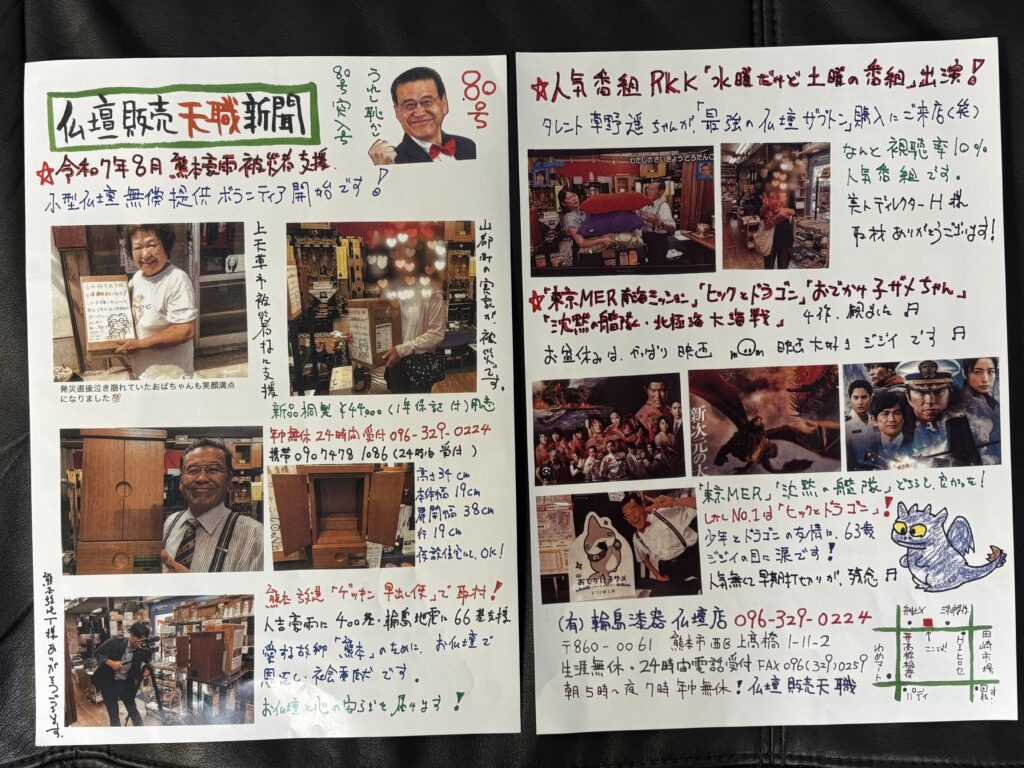 仏壇販売天職新聞
80号突入
うれし恥かし
80号
☆令和7年8月 熊本豪雨被災者支援
小型仏壇無償提供ボランティア開始です!
上天草市被災者様に支援
山都町の実家が、被災です。
発災直後泣き崩れていたおばちゃんも笑顔満点
になりました
新品桐製¥44,000(1年保証付)用意
年中無休24時間受付096-329-0224
携帯090 7478 1086(24時間受付)
高さ34cm
本体幅19cm
扉開幅38cm
行19cm
仮設住宅にOK!
熊本放送「ゲツキン早出し便」で取材!
人吉豪雨に400基・輪島地震に66基支援
愛する故郷「熊本」のために、お仏壇で
恩返し・社会貢献です。
お仏壇と心の安らぎを届けます!
☆人気番組RKK「水曜だけど土曜の番組」出演!
タレント草野遥ちゃんが、「最強の仏壇ザブトン」購入にご来店(笑)
わたしのさいきょうとろたんこ
なんと視聴率10%
人気番組です。
美人ディレクターH様
取材ありがとうございます!
☆「東京MER南海ミッション」「ヒックとドラゴン」「おでかけ子ザメちゃん」
「沈黙の艦隊・北極海大海戦」 4作、観ました♬
お盆休みは、やっぱり映画 映画大好きジジイです♬
新次元の
おでかけ子ザメ
「東京MER」「沈黙の艦隊」どちらも良かった!
しかしNo.1は「ヒックとドラゴン」!
少年とドラゴンの友情に、63歳
ジジイの目に涙です!
人気無くて早期打ち切りが、残念♬
(有)輪島漆器仏壇店 096-329-0224
〒860-0061 熊本市西区上高橋1-11-2
生涯無休・24時間電話受付 FAX096(329)0259
朝5時〜夜7時年中無休!仏壇販売天職
ここです!
田崎市場
HIヒロセ
井高橋稲荷
ゆめマート